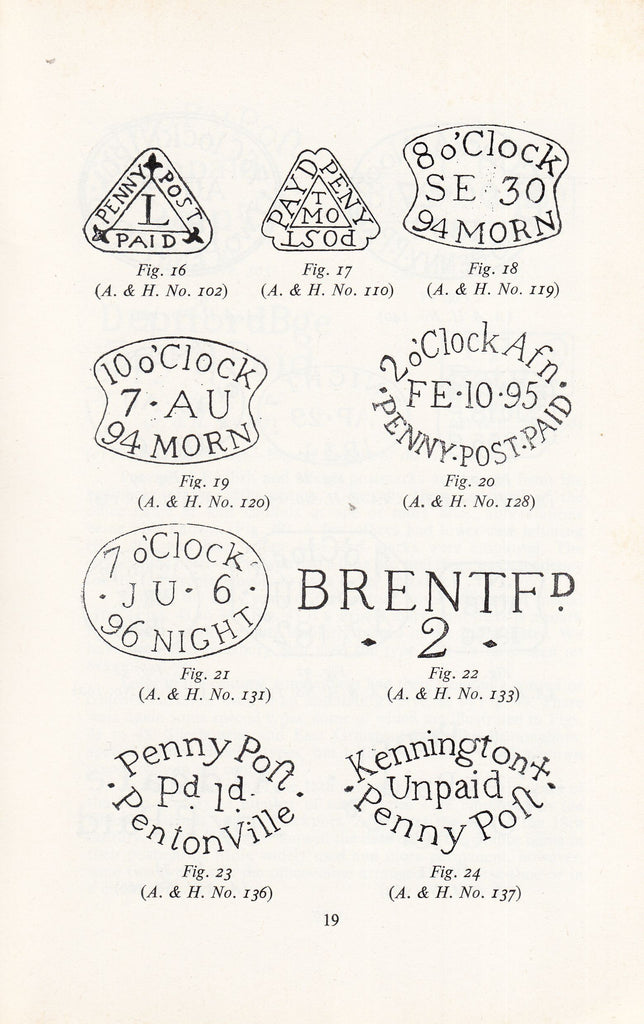 PENNY POST PAID
L
Fig. 16
(A. & H. No. 102)
PAYD PENY POST
T
MO
Fig. 17
(A. & H. No. 110)
8 o'Clock
SE 30
94 MORN
Fig. 18
(A. & H. No. 119)
10 o'Clock
7 · AU
94 MORN
Fig. 19
(A. & H. No. 120)
2 o'Clock Afn.
FE·10·95
·PENNY·POST·PAID
Fig. 20
(A. & H. No. 128)
7 o'Clock
· JU · 6 ·
96 NIGHT
Fig. 21
(A. & H. No. 131)
BRENTFD
· 2 ·
Fig. 22
(A. & H. No. 133)
Penny Poſt
Pd. 1d.
· PentonVille ·
Fig. 23
(A. & H. No. 136)
Kennington+
Unpaid
· Penny Poſt ·
Fig. 24
(A. & H. No. 137)
19